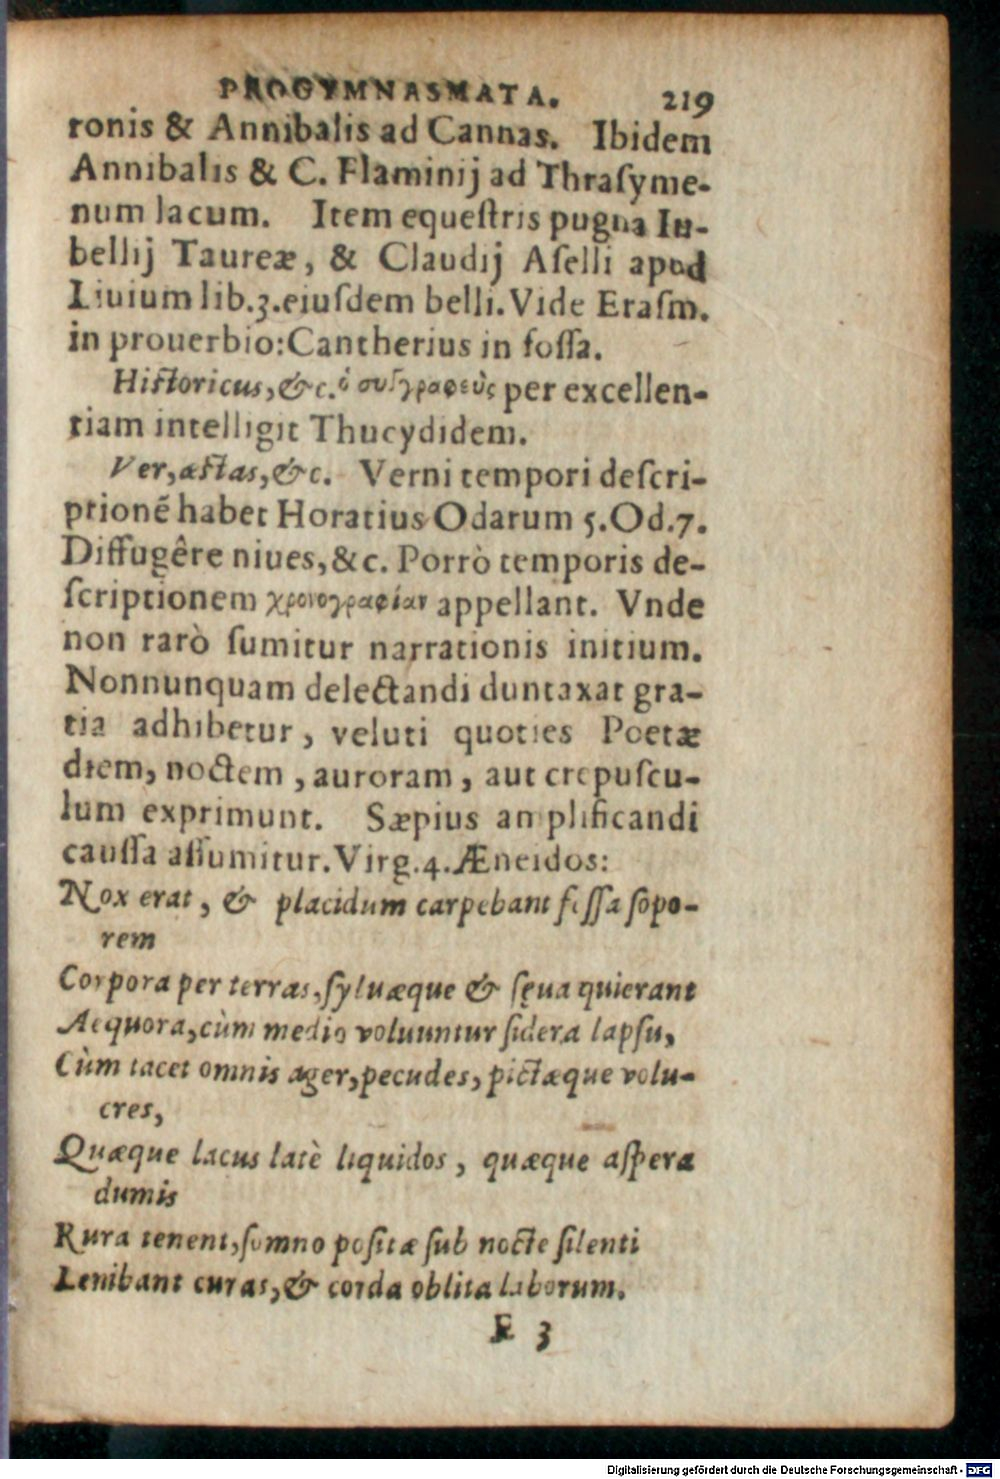 PROGYMNASMATA. 219
ronis & Annibalis ad Cannas. Ibidem
Annibalis & C. Flaminij ad Thraſyme-
num lacum. Item equeſtris pugna Iu-
bellij Taureæ, & Claudij Aſelli apud
Liuium lib.3.eiuſdem belli. Vide Eraſm.
in prouerbio: Cantherius in foſſa.
Hiſtoricus, &c. ὁ συγγραφεὺς per excellen-
tiam intelligit Thucydidem.
Ver, æſtas, &c. Verni tempori deſcri-
ptionē habet Horatius Odarum 5. Od.7.
Diffugêre niues, &c. Porrò temporis de-
ſcriptionem χρονογραφίαν appellant. Vnde
non rarò ſumitur narrationis initium.
Nonnunquam delectandi duntaxat gra-
tia adhibetur, veluti quoties Poetæ
diem, noctem, auroram, aut crepuſcu-
lum exprimunt. Sæpius amplificandi
cauſſa aſſumitur. Virg.4. Æneidos:
Nox erat, & placidum carpebant feſſa ſopo-
rem
Corpora per terras, ſyluæque & ſęua quierant
Aequora, cùm medio voluuntur ſidera lapſu,
Cùm tacet omnis ager, pecudes, pictæque volu-
cres,
Quæque lacus latè liquidos, quæque aſpera
dumis
Rura tenent, ſomno poſitæ ſub nocte ſilenti
Lenibant curas, & corda oblita laborum.
E 3
Digitalisierung gefördert durch die Deutsche Forschungsgemeinschaft - DFG